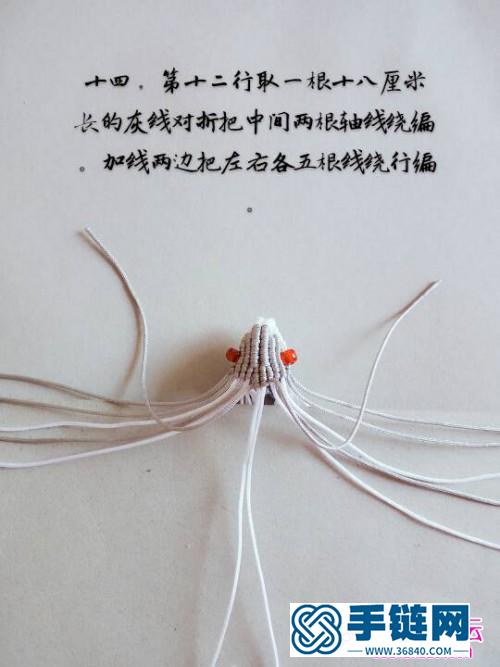 十四。第十二行取一根十八厘米
长的灰线对折把中间两根轴线绕编
。加线两边把左右各五根线绕行编
。
手链网
云
www.36840.com